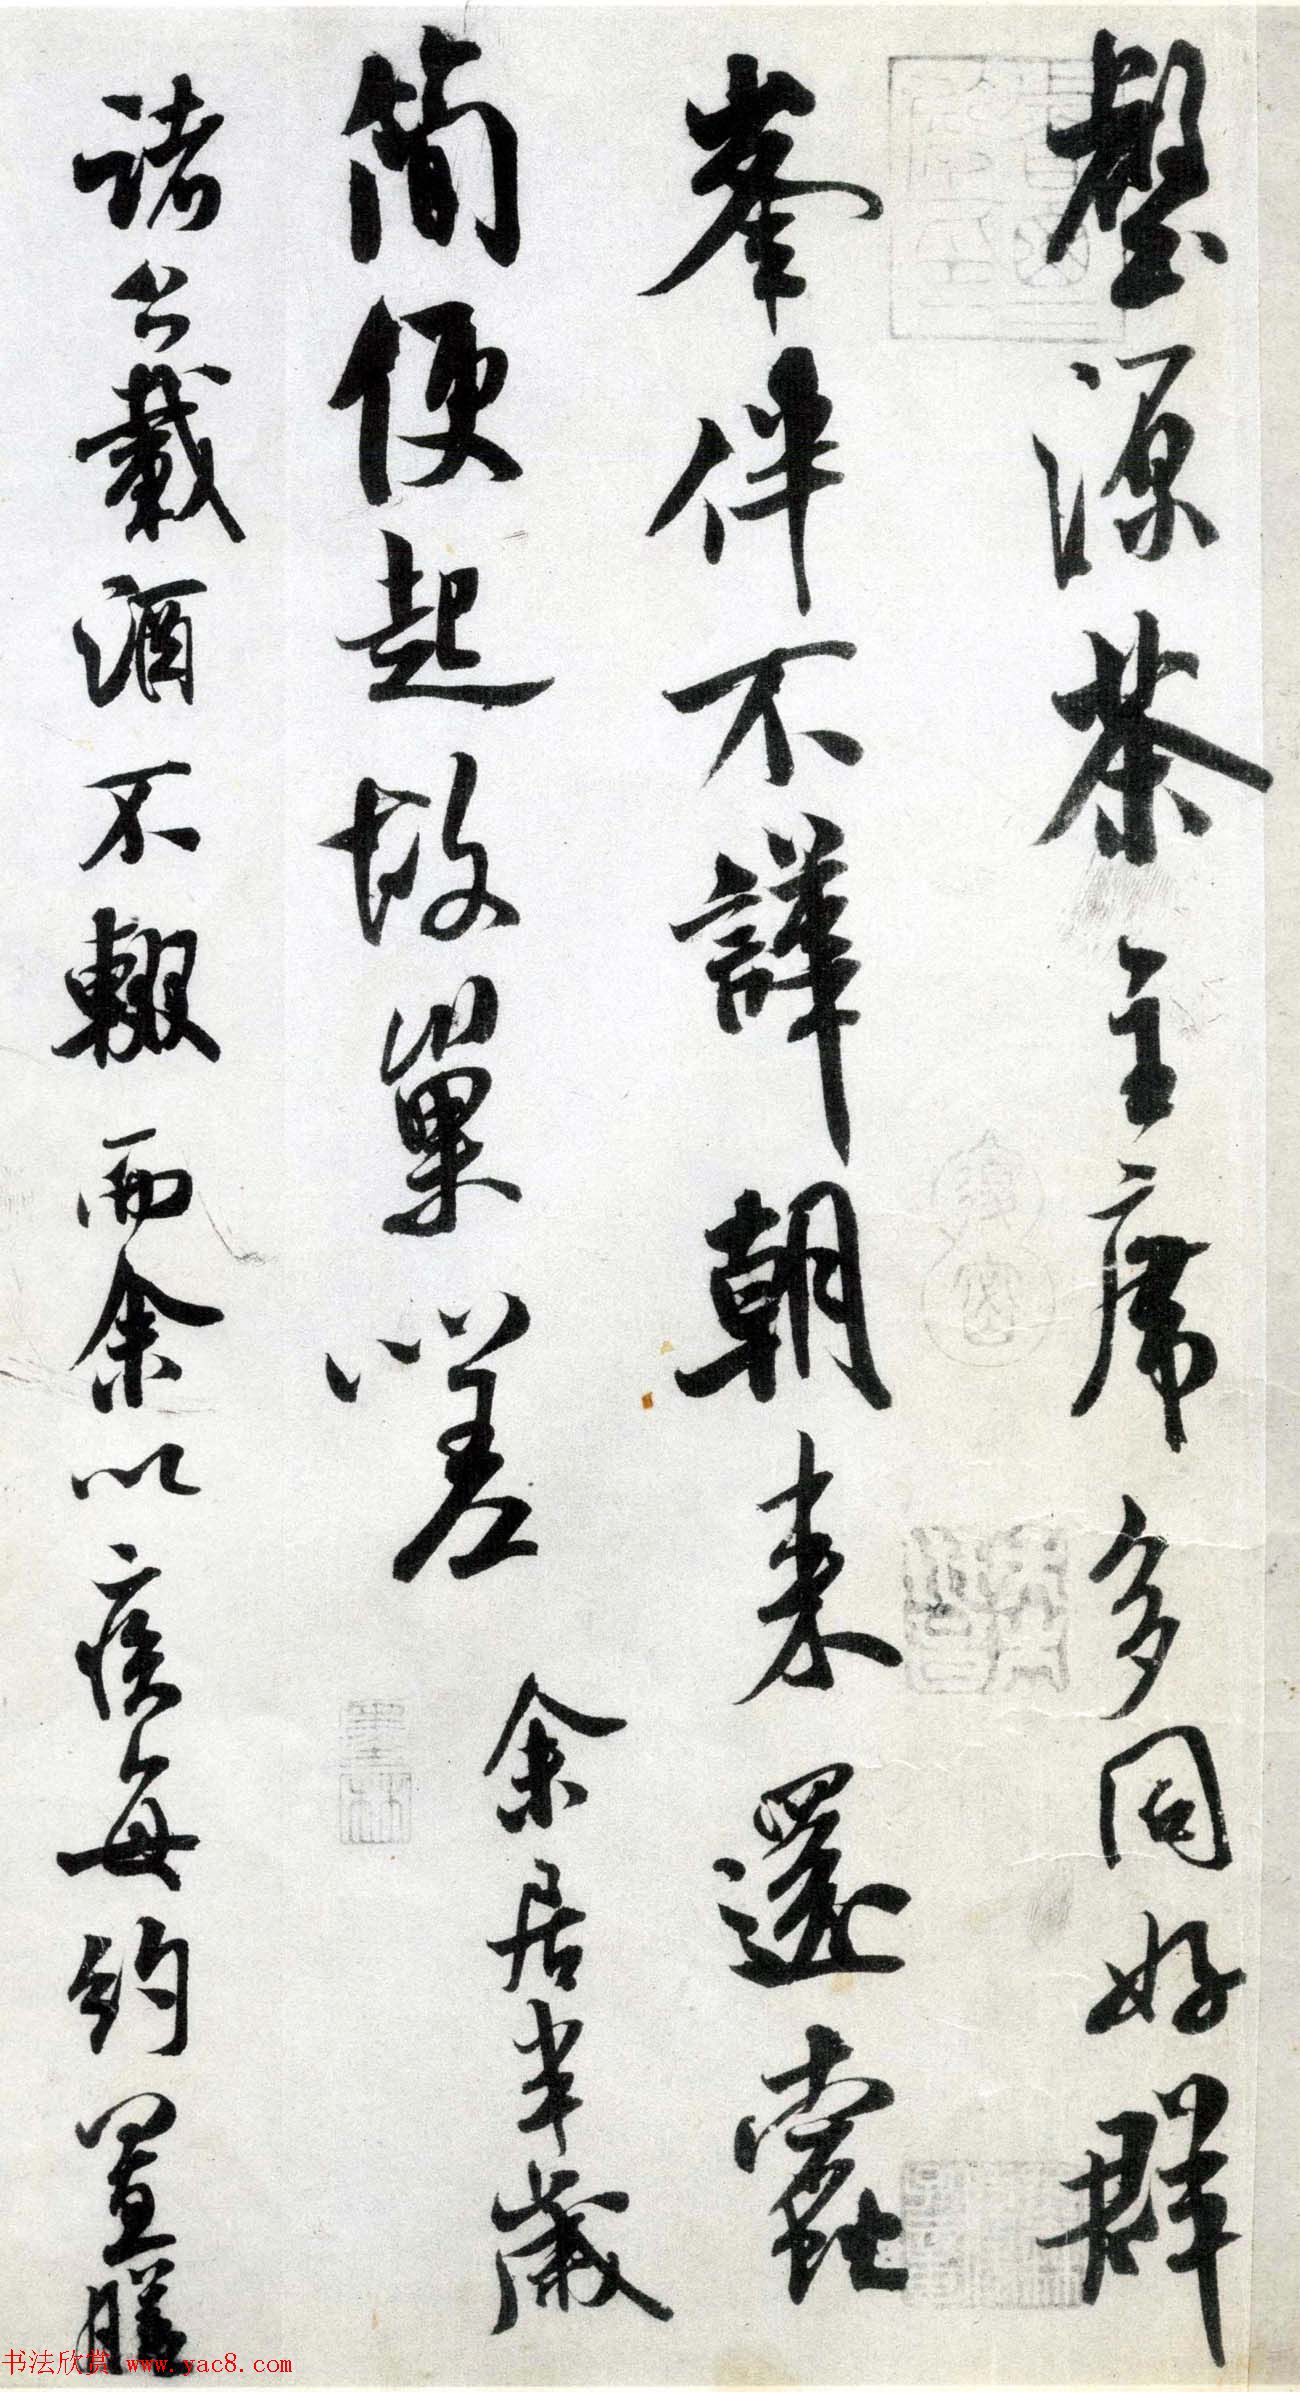 壑源茶主席多同好群
峯伴不譁朝来還蠹
簡便起故巢嗟
余居半歲
諸公載酒不輟而余以疾每約置膳
墨林
书法欣赏 www.yac8.com